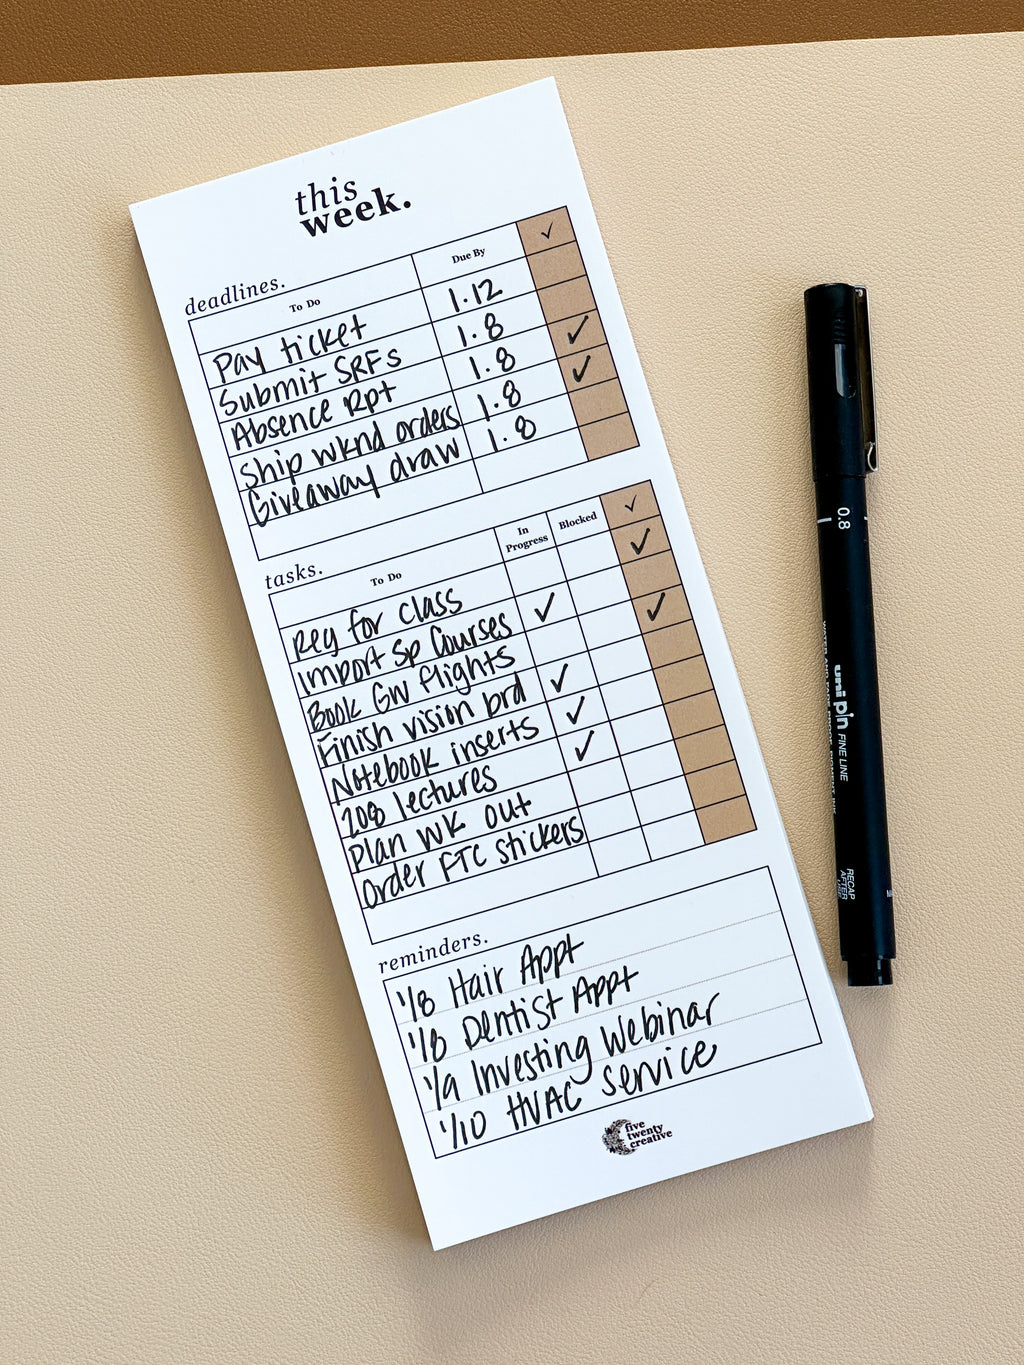 this
week.
deadlines.
To Do Due By ✓
Pay ticket 1.12
Submit SRFs 1.8
Absence Rpt 1.8 ✓
Ship wknd orders 1.8 ✓
Giveaway draw 1.8
tasks.
To Do In Progress Blocked ✓
Reg for class ✓
Import Sp Courses ✓
Book GW flights ✓
Finish vision brd ✓
Notebook inserts ✓
208 lectures ✓
Plan wk out
Order FTC stickers
reminders.
1/8 Hair Appt
1/8 Dentist Appt
1/9 Investing Webinar
1/10 HVAC service
five
twenty
creative
0.8
uni pin FINE LINE
RECAP
AFTER
USE